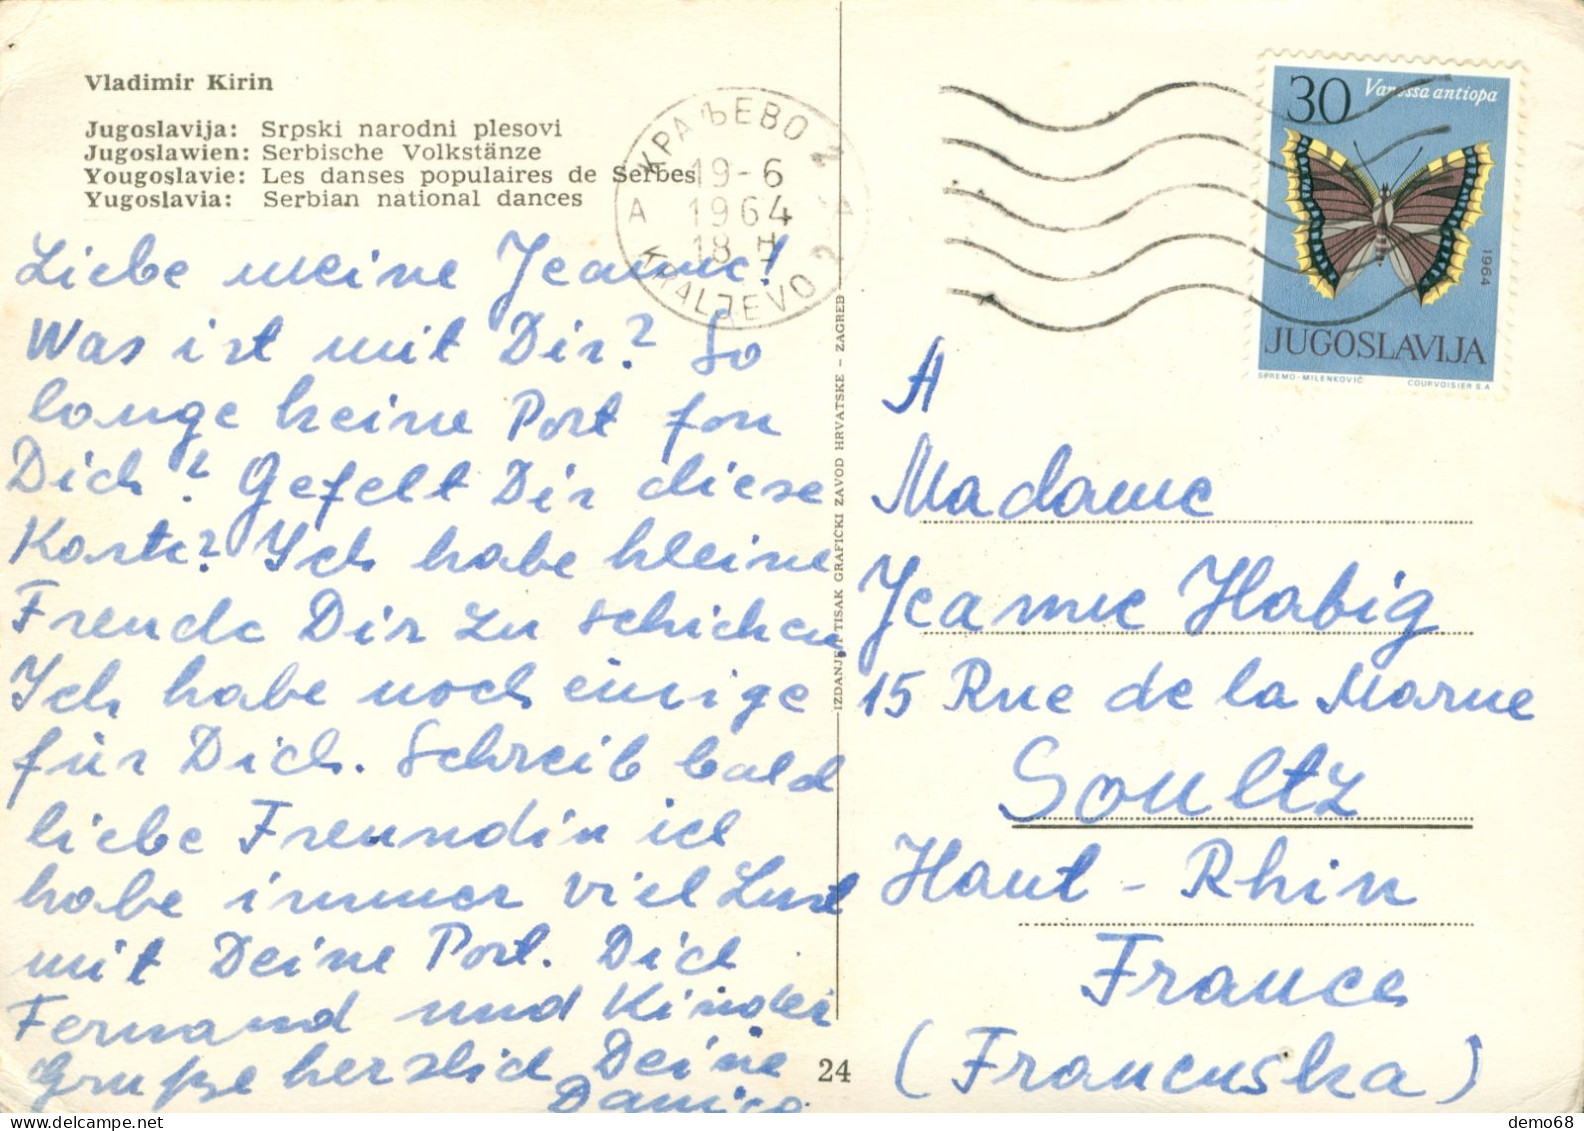 Vladimir Kirin
Jugoslavija: Srpski narodni plesovi
Jugoslawien: Serbische Volkstänze
Yougoslavie: Les danses populaires de Serbes
Yugoslavia: Serbian national dances
КРАЉЕВО 2
19-6
A 1964
18 H
KRALJEVO 2
30 Vanessa antiopa
1964
JUGOSLAVIJA
SPREMO-MILENKOVIĆ COURVOISIER S.A
Liebe meine Jeanne!
Was ist mit Dir? So
lange keine Post fon
Dich? Gefelt Dir diese
Karte? Ich habe kleine
Freude Dir zu schicken
Ich habe noch einige
für Dich. Schreib bald
liebe Freundin ich
habe immer viel Lust
mit Deine Post. Dich
Fernand und Kinder
Gruße herzlich Deine
Danica
IZDANJE I TISAK GRAFIČKI ZAVOD HRVATSKE - ZAGREB
24
A
Madame
Jeanne Habig
15 Rue de la Marne
Soultz
Haut-Rhin
France
(Francuska)
demo68